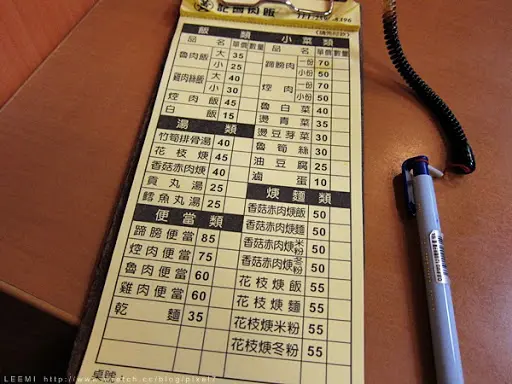 肥圓肉飯
飯類 小菜類
品名 單價 數量 品名 單價 數量
魯肉飯 大 35 蹄膀肉 一份 70
小 25 小份 50
雞肉絲飯 大 40 焢肉 一份 70
小 30 小份 50
焢肉飯 45 魯白菜 40
白飯 15 燙青菜 35
湯類 燙豆芽菜 30
竹筍排骨湯 40 魯筍絲 30
花枝焿 45 油豆腐 25
香菇赤肉焿 40 滷蛋 10
貢丸湯 25 焿麵類
鱈魚丸湯 25 香菇赤肉焿飯 50
便當類 香菇赤肉焿麵 50
蹄膀便當 85 香菇赤肉焿米粉 50
焢肉便當 75 香菇赤肉焿冬粉 50
魯肉便當 60 花枝焿飯 55
雞肉便當 60 花枝焿麵 55
乾麵 35 花枝焿米粉 55
花枝焿冬粉 55
桌號
LEEMI